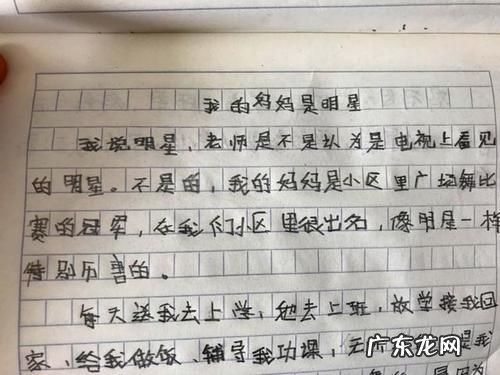 我的妈妈是明星
我说明星，老师是不是认为是电视上看见
的明星。不是的，我的妈妈是小区里广场舞比
赛的冠军，在我们小区里很出名，像明星一样
特别厉害的。
每天送我去上学，她去上班，放学接我回
家、给我做饭、辅导我功课，无
是我
广东龙网
WWW.GDXJLY.COM